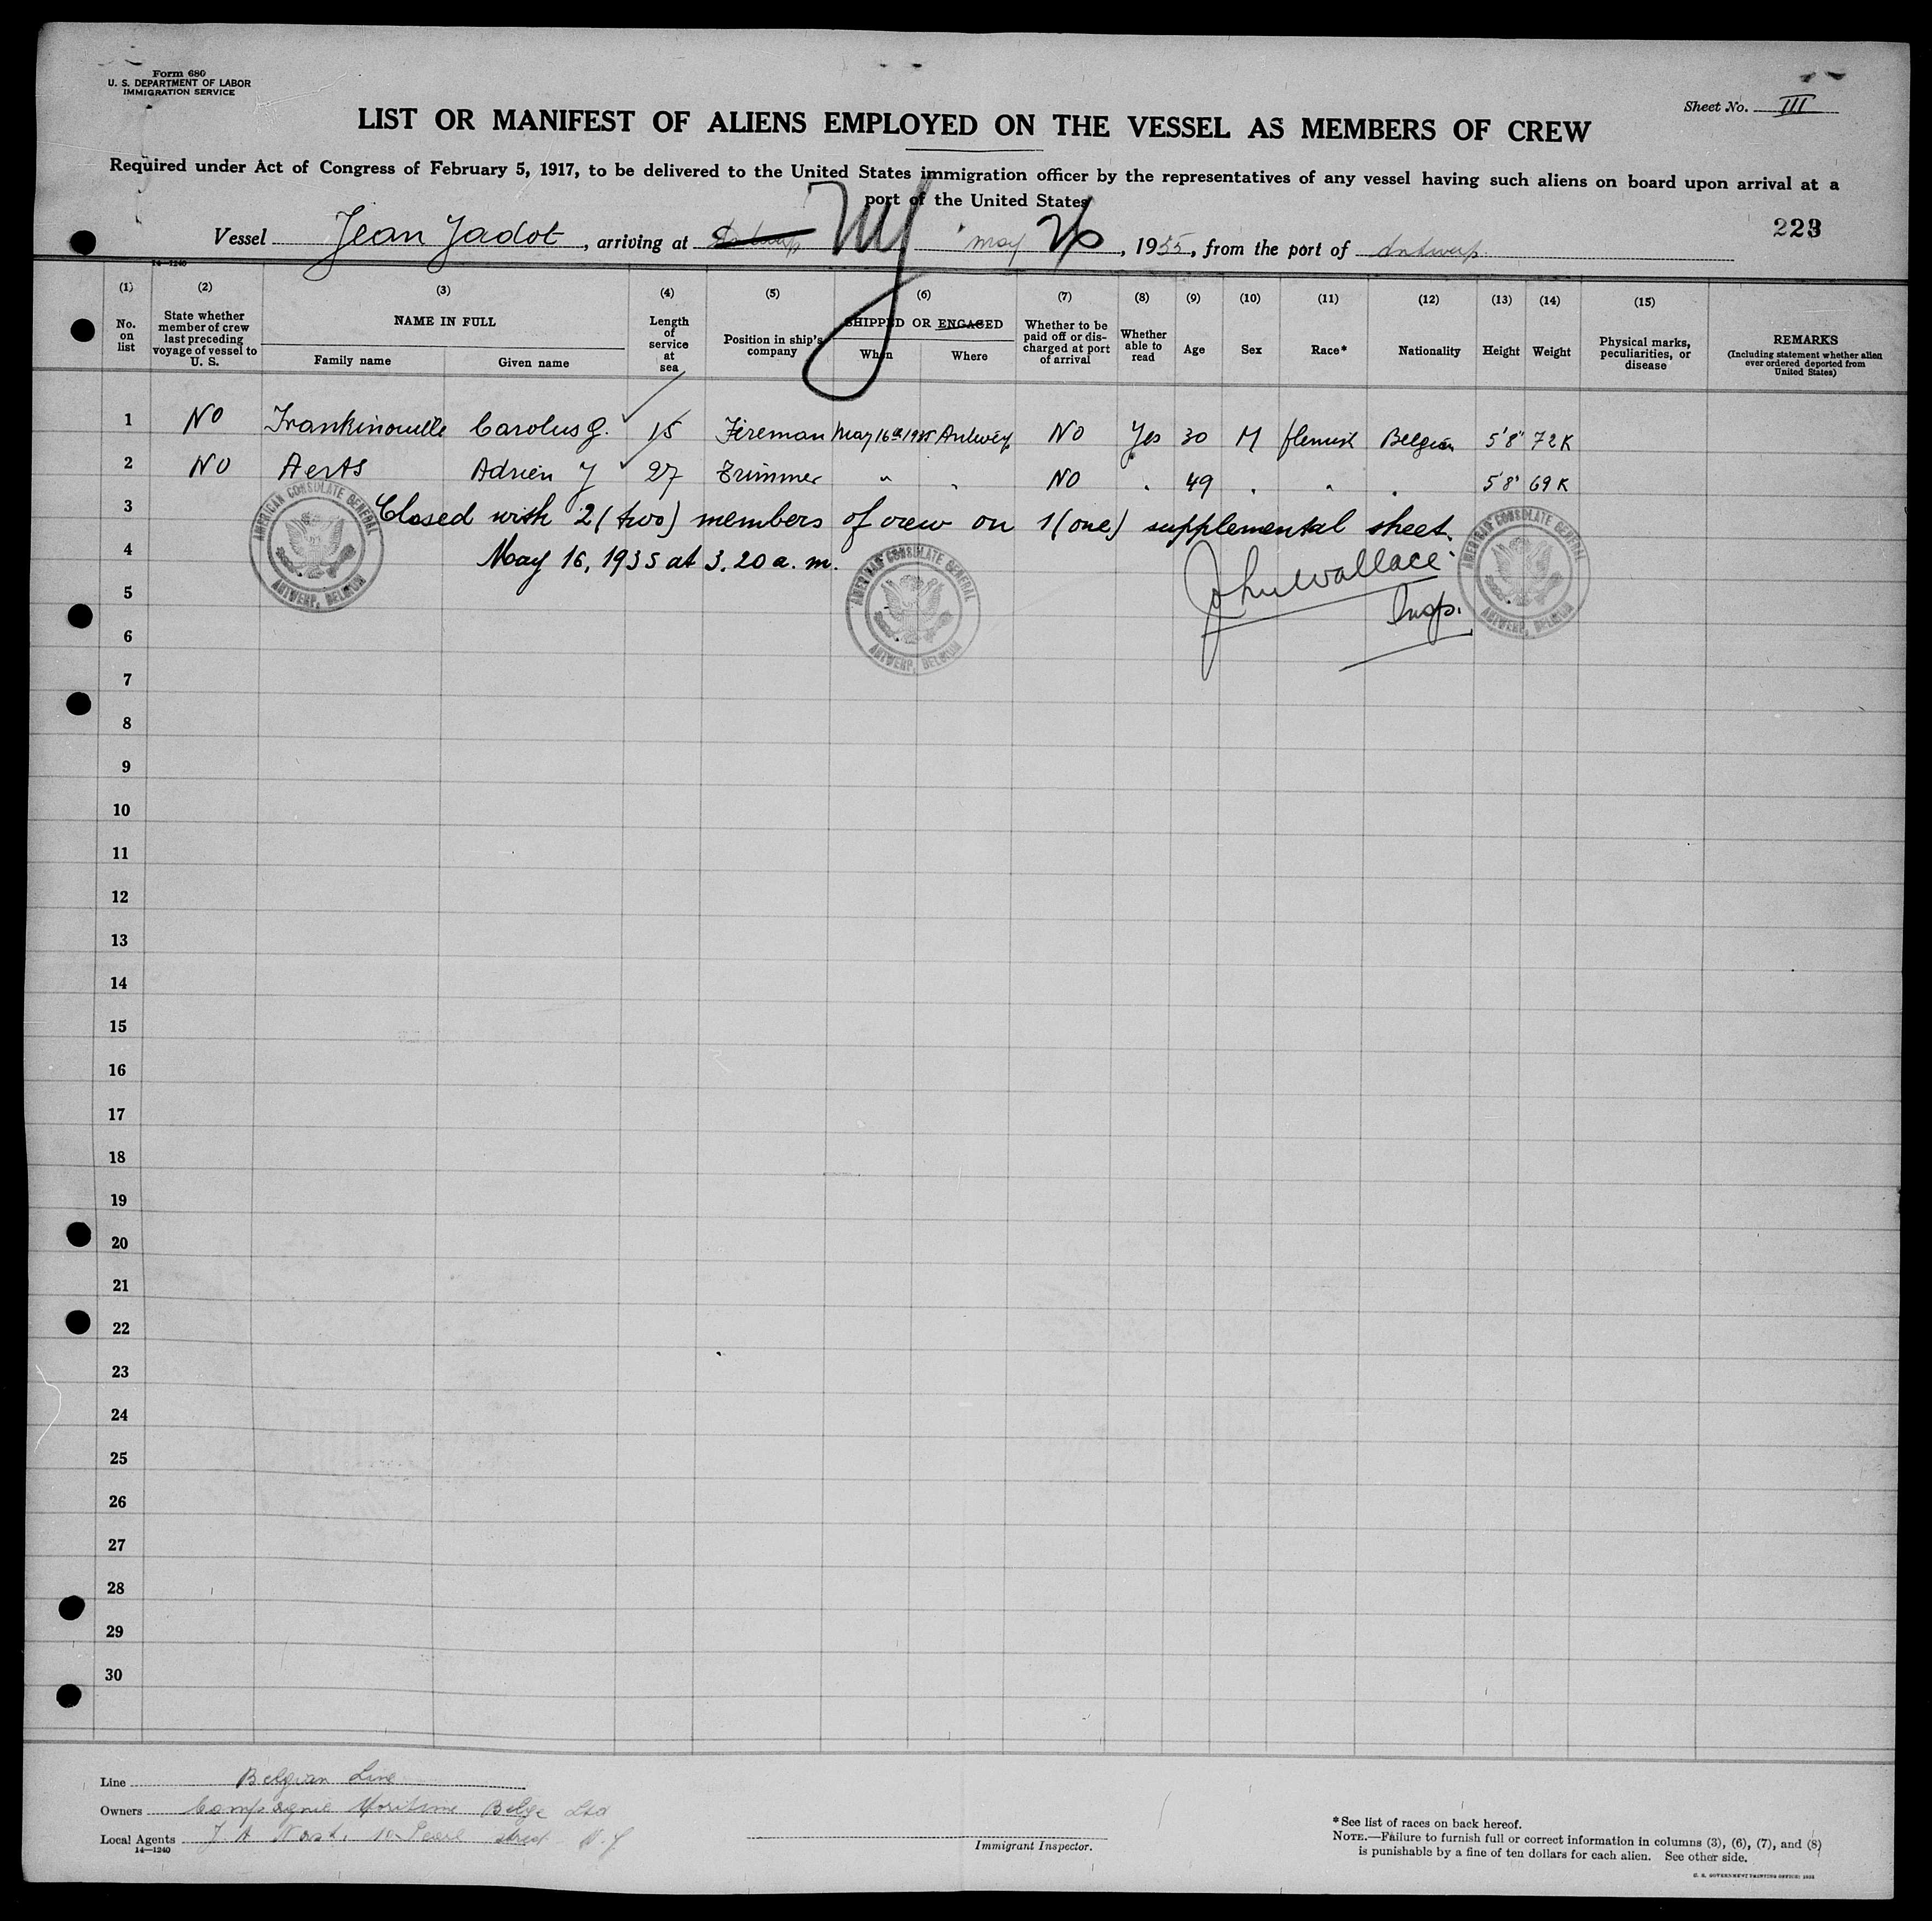 Form 680
U. S. DEPARTMENT OF LABOR
IMMIGRATION SERVICE
Sheet No. III
LIST OR MANIFEST OF ALIENS EMPLOYED ON THE VESSEL AS MEMBERS OF CREW
Required under Act of Congress of February 5, 1917, to be delivered to the United States immigration officer by the representatives of any vessel having such aliens on board upon arrival at a
port of the United States
223
Vessel Jean Jadot, arriving at NY May 26, 1935, from the port of Antwerp
14—1240
(1) (2) (3) (4) (5) (6) (7) (8) (9) (10) (11) (12) (13) (14) (15)
No. on list
State whether member of crew last preceding voyage of vessel to U. S.
NAME IN FULL
Family name
Given name
Length of service at sea
Position in ship's company
SHIPPED OR ENGAGED
When
Where
Whether to be paid off or discharged at port of arrival
Whether able to read
Age
Sex
Race*
Nationality
Height
Weight
Physical marks, peculiarities, or disease
REMARKS
(Including statement whether alien ever ordered deported from United States)
1 NO Carolus G. 15 Fireman May 16th 1935 Antwerp NO Yes 30 M flemish Belgian 5'8" 72 K
2 NO Aerts Adrien J 27 Trimmer " " NO " 49 " " " 5'8" 69 K
3 Closed with 2 (two) members of crew on 1 (one) supplemental sheet.
4 May 16, 1935 at 3.20 a. m.
John Wallace
Insp.
AMERICAN CONSULATE GENERAL
ANTWERP, BELGIUM
AMERICAN CONSULATE GENERAL
ANTWERP, BELGIUM
AMERICAN CONSULATE GENERAL
ANTWERP, BELGIUM
5
6
7
8
9
10
11
12
13
14
15
16
17
18
19
20
21
22
23
24
25
26
27
28
29
30
Line Belgian Line
Owners Compagnie Maritime Belge Ltd
Local Agents Pearl street N.Y.
14—1240
Immigrant Inspector.
*See list of races on back hereof.
NOTE.—Failure to furnish full or correct information in columns (3), (6), (7), and (8)
is punishable by a fine of ten dollars for each alien. See other side.